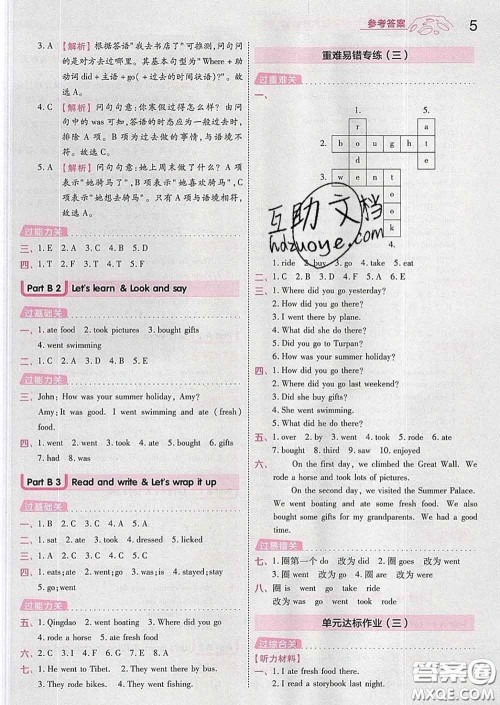 参考答案
5
3. A【解析】根据答语“我去书店了”可推测,问句问
的是对方去过哪里。其基本句型为“Where + 助
动词 did + 主语 + go( + 过去的时间状语)?”。因
此选A。
4. C【解析】问句句意:你寒假过得怎么样? 由问
句中的 was 可知,答语的时态应为一般过去时,故
排除 A 项。B 项为过去做的事情,与语境不
符。故选C。
5. A【解析】问句句意:她上周末做了什么? A 项
表示“她骑马了”,B 项表示“她喜欢骑马”,C 项
表示“她想去骑马”。只有 A 项符合语境,故
选A。
过能力关
三、1. E 2. A 3. C 4. B 5. D
四、1. T 2. F 3. F 4. F 5. T
Part B 2 Let's learn & Look and say
过基础关
一、1. ate food 2. took pictures 3. bought gifts
4. went swimming
二、1. C 2. D 3. A 4. B 5. E
过能力关
三、John: How was your summer holiday, Amy?
Amy: It was good. I went swimming and ate (fresh)
food.
四、1. went 2. went 3. took 4. ate 5. bought
Part B 3 Read and write & Let's wrap it up
过基础关
一、1. B 2. C 3. C 4. A 5. C
二、1. sat 2. ate 3. bought 4. took
三、1. C 2. A 3. B 4. B 5. A
四、1. eats;ate 2. went;went 3. is;was 4. stayed;stay
5. go;went
过能力关
五、1. Qingdao 2. went swimming 3. by ship
4. rode a horse 5. ate fresh food
六、1. F 2. F 3. T 4. F
七、1. He went to Tibet. 2. They went there by train.
3. They rode bikes. 4. They went swimming.
重难易错专练(三)
过重难关
一、
1. 5.
r a
2. b o u g h t
d e
3. w e n t
o
o
k
4.
1. ride 2. buy 3. go 4. take 5. eat
二、1. C 2. C 3. A 4. B 5. C
三、1. Where did you go yesterday?
2. How did you go there?
3. I went there by plane.
4. What did she do there?
5. Did you go to Turpan?
6. How was your summer holiday?
四、1. How did you go there?
2. Where did you go last weekend?
3. Did she buy gifts?
4. She went swimming.
5. How was your holiday?
五、1. over 2. by 3. went 4. took 5. ate
6. got 7. bought 8. third 9. saw 10. enjoyed
六、On the first day, we climbed the Great Wall. We
rode a horse and took pictures.
On the second day, we visited the Summer Palace.
We went boating and ate some fresh food. We also
bought some gifts for my grandparents. We had a good
time.
过易错关
七、1. 圈第一个 do 改为 did 2. 圈 goes 改为 went
3. 圈 go 改为 went 4. 圈 Do 改为 Did 5. 圈 take
改为 took 6. 圈 went 改为 go
单元达标作业(三)
过综合关
【听力材料】
一、1. I ate fresh food there.
2. I read a storybook last night.
互助文档
hdzuoye.com
答案圈
MXQE.COM